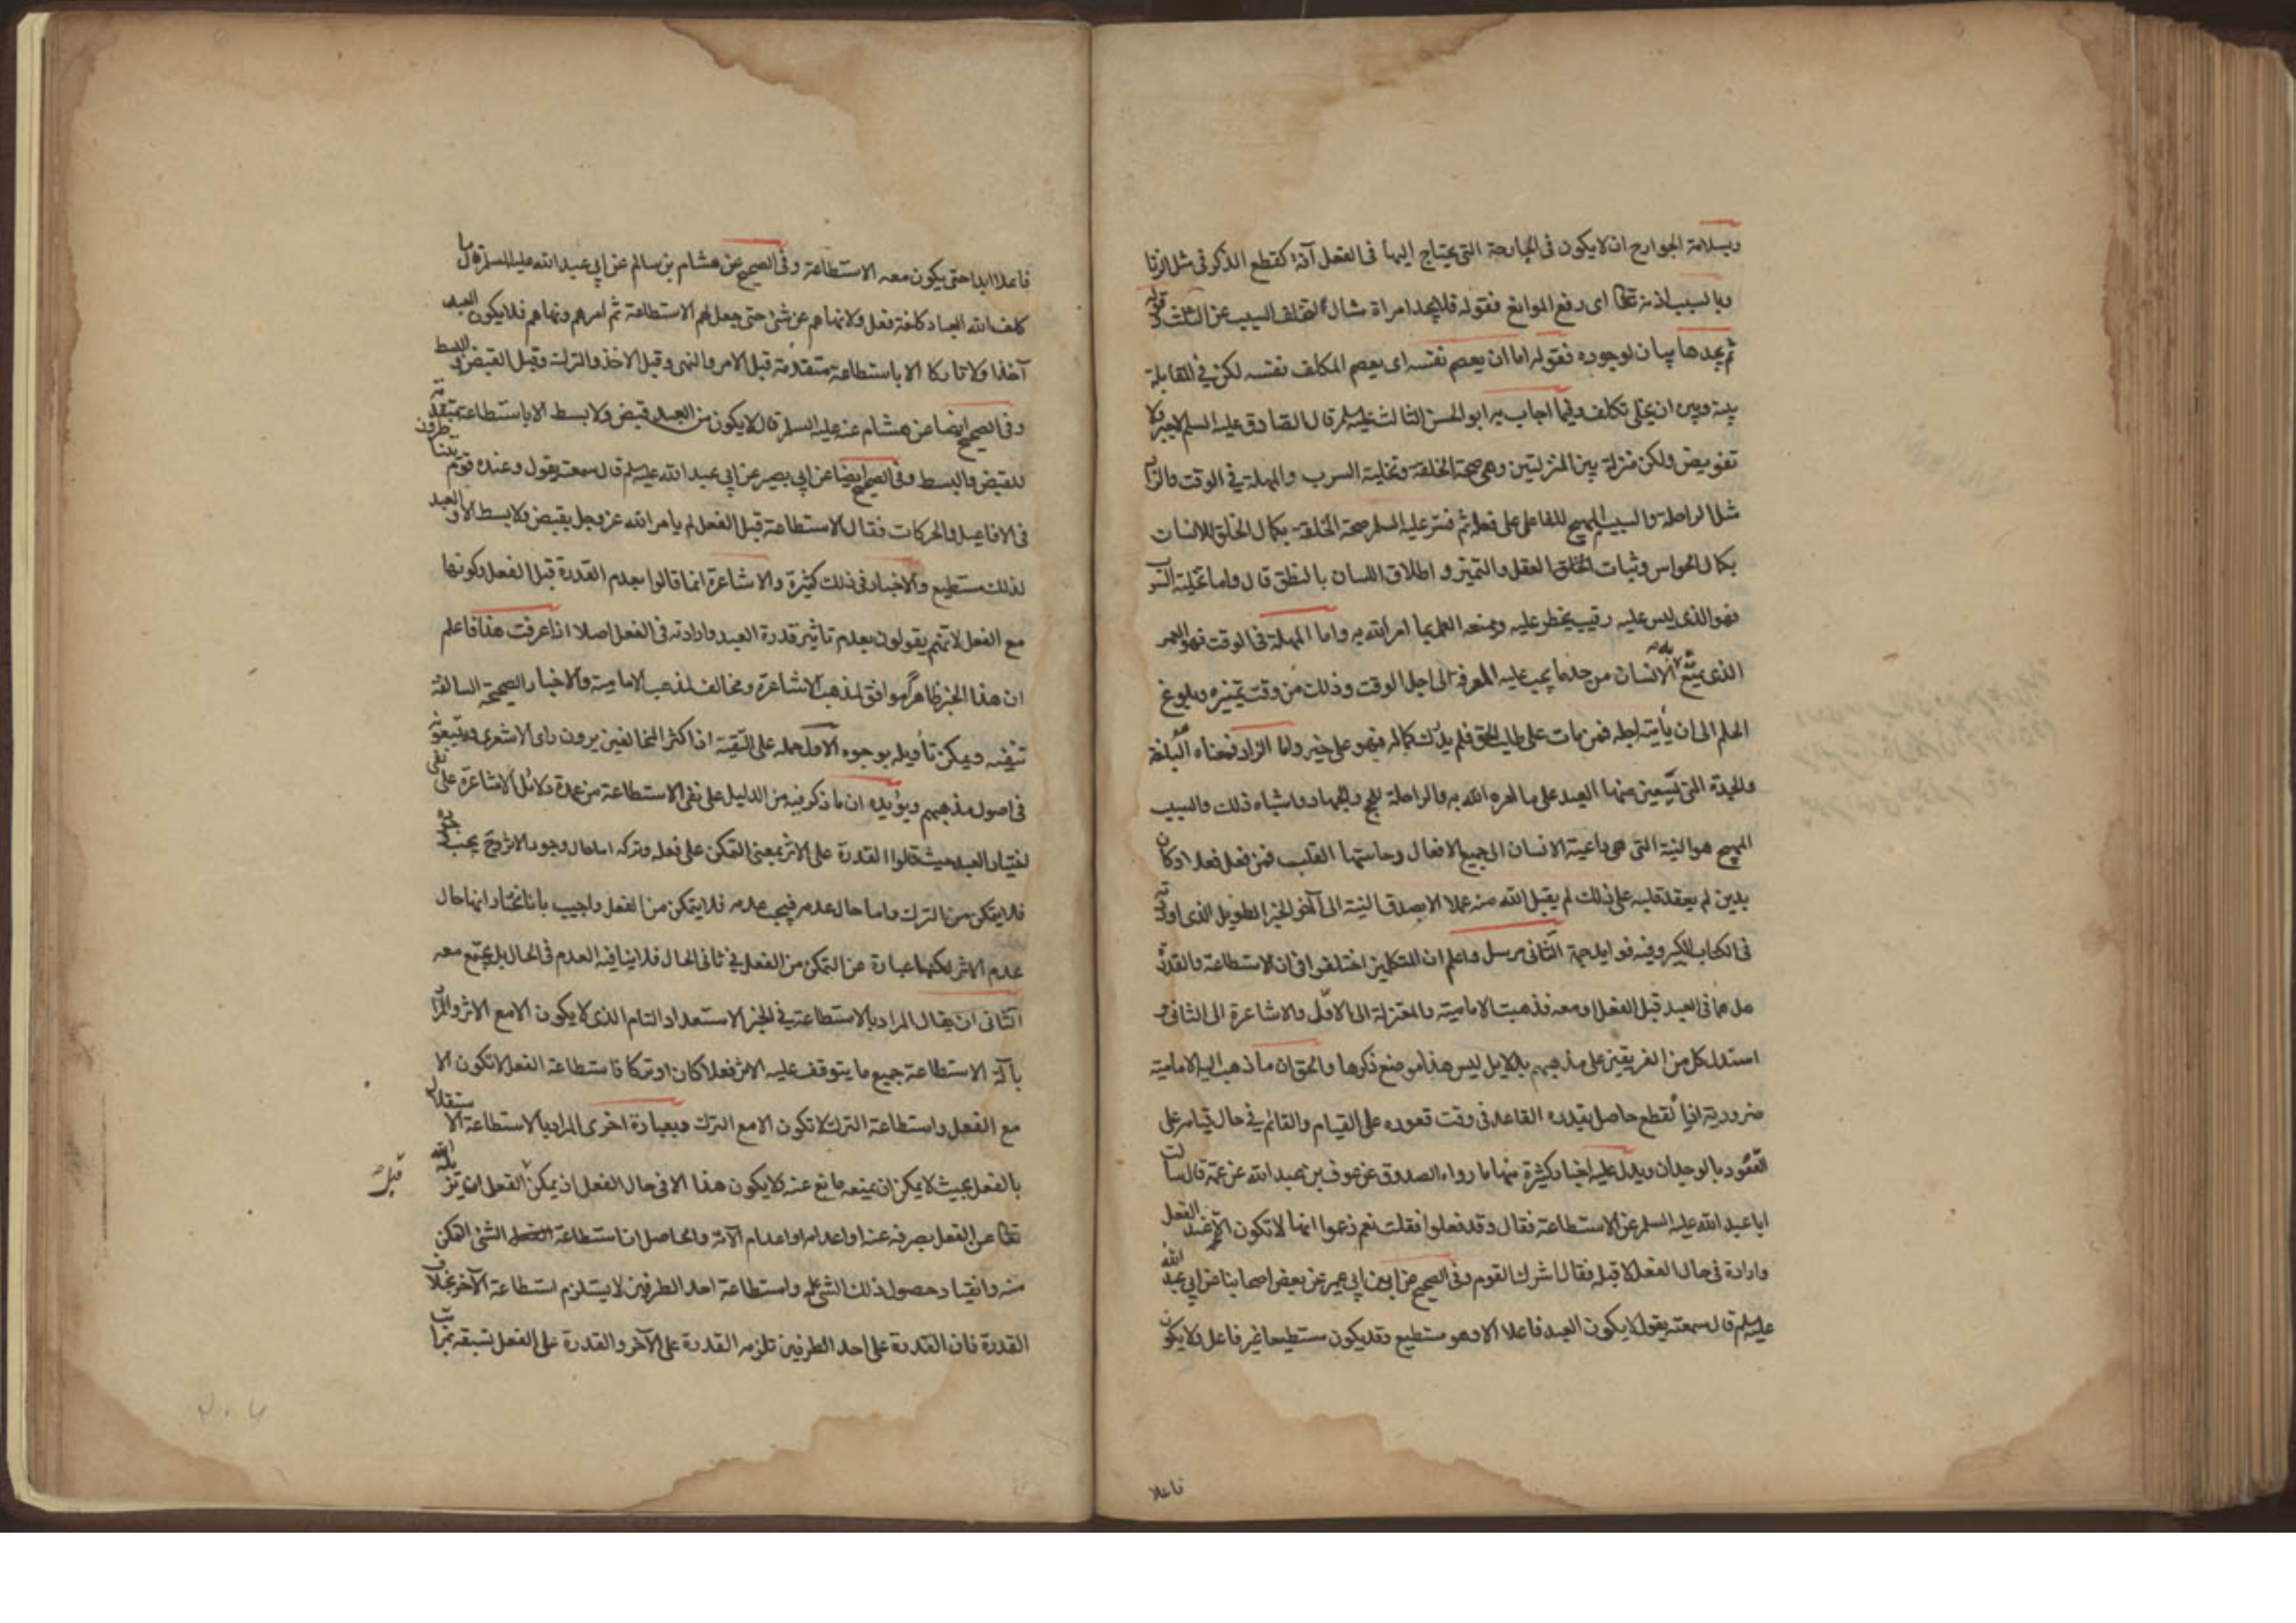 وبسلامة الجوارح ان لا يكون فى الجارحة التى يحتاج اليها فى الفعل آفة كقطع الذكر فى مثل الزنا
وبالسبب اذنه تعالى اى رفع الموانع فقوله فلا يجد امراة مثال لتخلف السبب عن الثلث وقوله
ثم يجدها بيان لوجوده فقوله اما ان يعصم نفسه اى يعصم المكلف نفسه لكن فى المقابلة
بينه وبين ان يخلى تكلف وفيما اجاب به ابو الحسن الثالث عليه السلم قال الصادق عليه السلم لا جبر ولا
تفويض ولكن منزلة بين المنزلتين وهى صحة الخلقة وتخلية السرب والمهلة فى الوقت والزاد
مثل الراحلة والسبب المهيج للفاعل على فعله ثم فسر عليه السلم صحة الخلقة بكمال الخلق للانسان
بكمال الحواس وثبات العقل والتميز و اطلاق اللسان بالنطق قال واما تخلية السرب
فهو الذى ليس عليه رقيب يحظر عليه ويمنعه العمل بما امر الله به واما المهلة فى الوقت فهو العمر
الذى يمتع به الانسان من حد ما يجب عليه المعرفة الى اجل الوقت وذلك من وقت تميزه وبلوغ
الحلم الى ان يأتيه اجله فمن مات على طلب الحق فلم يدرك كماله فهو على خير واما الزاد فمعناه البلغة
والجدة التى يستعين منها العبد على ما امره الله به والراحلة للحج والجهاد واشباه ذلك والسبب
المهيج هو النية التى هى داعية الانسان الى جميع الافعال وحاستها القلب فمن فعل فعلا وكان
بدين لم يعقد قلبه على ذلك لم يقبل الله منه عملا الا بصدق النية الى آخر الخبر الطويل الذى اوردته
فى الكتاب الكبير وفيه فوايد جمة الثانى مرسل واعلم ان المتكلمين اختلفوا فى ان الاستطاعة والقدرة
هل هما فى العبد قبل الفعل او معه فذهبت الامامية والمعتزلة الى الاول والاشاعرة الى الثانى و
استدل كل من الفريقين على مذهبهم بدلايل ليس هذا موضع ذكرها والحق ان ما ذهب اليه الامامية
ضرورية اذ القطع حاصل بقدرة القاعد فى وقت قعوده على القيام والقائم فى حال قيامه على
القعود بالوجدان ويدل عليه اخبار كثيرة منها ما رواه الصدوق عن عوف بن عبد الله عن عمه قال سالت
ابا عبد الله عليه السلم عن الاستطاعة فقال وقد فعلوا فقلت نعم زعموا انها لا تكون الا عند الفعل
وارادة فى حال الفعل لا قبله فقال اشرك القوم وفى الصحيح عن ابن ابى عمير عن بعض اصحابنا عن ابى عبد الله
عليه السلم قال سمعته يقول لا يكون العبد فاعلا الا وهو مستطيع وقد يكون مستطيعا غير فاعل ولا يكون
فاعلا
فاعلا ابدا حتى يكون معه الاستطاعة وفى الصحيح عن هشام بن سالم عن ابى عبد الله عليه السلم قال ما
كلف الله العباد كلفة فعل ولا نهاهم عن شئ حتى جعل لهم الاستطاعة ثم امرهم ونهاهم فلا يكون العبد
آخذا ولا تاركا الا باستطاعة متقدمة قبل الامر والنهى وقبل الاخذ والترك وقبل القبض والبسط
وفى الصحيح ايضا عن هشام عنه عليه السلم قال لا يكون من العبد قبض ولا بسط الا باستطاعة متقدمة
للقبض والبسط وفى الصحيح ايضا عن ابى بصير عن ابى عبد الله عليه السلم قال سمعته يقول وعنده قوم يتناظرون
فى الافاعيل والحركات فقال الاستطاعة قبل الفعل لم يامر الله عز وجل بقبض ولا بسط الا والعبد
لذلك مستطيع والاخبار فى ذلك كثيرة والاشاعرة انما قالوا بعدم القدرة قبل الفعل وكونها
مع الفعل لانهم يقولون بعدم تاثير قدرة العبد وارادته فى الفعل اصلا اذا عرفت هذا فاعلم
ان هذا الخبر ظاهرا موافق لمذهب الاشاعرة ومخالف لمذهب الامامية والاخبار الصحيحة السالفة
تنفيه ويمكن تأويله بوجوه الاول حمله على التقية اذ اكثر المخالفين يرون راى الاشعرى ويتبعونه
فى اصول مذهبهم ويؤيده ان ما ذكر فيه من الدليل على نفى الاستطاعة من عمدة دلائل الاشاعرة على نفى
اختيار العبد حيث قالوا القدرة على الاثر بمعنى التمكن على فعله وتركه اما حال وجود الاثر وح يجب وجوده
فلا يتمكن من الترك واما حال عدمه فيجب عدمه فلا يتمكن من الفعل واجيب بانا نختار انها حال
عدم الاثر لكنها عبارة عن التمكن من الفعل فى ثانى الحال فلا ينافيه العدم فى الحال بل يجتمع معه
الثانى ان يقال المراد بالاستطاعة فى الخبر الاستعداد التام الذى لا يكون الا مع الاثر والمراد
بآلة الاستطاعة جميع ما يتوقف عليه الاثر فعلا كان او تركا فاستطاعة الفعل لا تكون الا
مع الفعل واستطاعة الترك لا تكون الا مع الترك وبعبارة اخرى المراد بالاستطاعة الاستقلال
بالفعل بحيث لا يمكن ان يمنعه مانع عنه ولا يكون هذا الا فى حال الفعل اذ يمكن قبل الفعل ان يزيله الله
تعالى عن الفعل بصرفه عنه او اعدامه او اعدام الآلة والحاصل ان استطاعة الشئ التمكن
منه وانقياد حصول ذلك الشئ له واستطاعة احد الطرفين لا يستلزم استطاعة الآخر بخلاف
القدرة فان القدرة على احد الطرفين تلزمه القدرة على الآخر والقدرة على الفعل تسبقه بمراتب